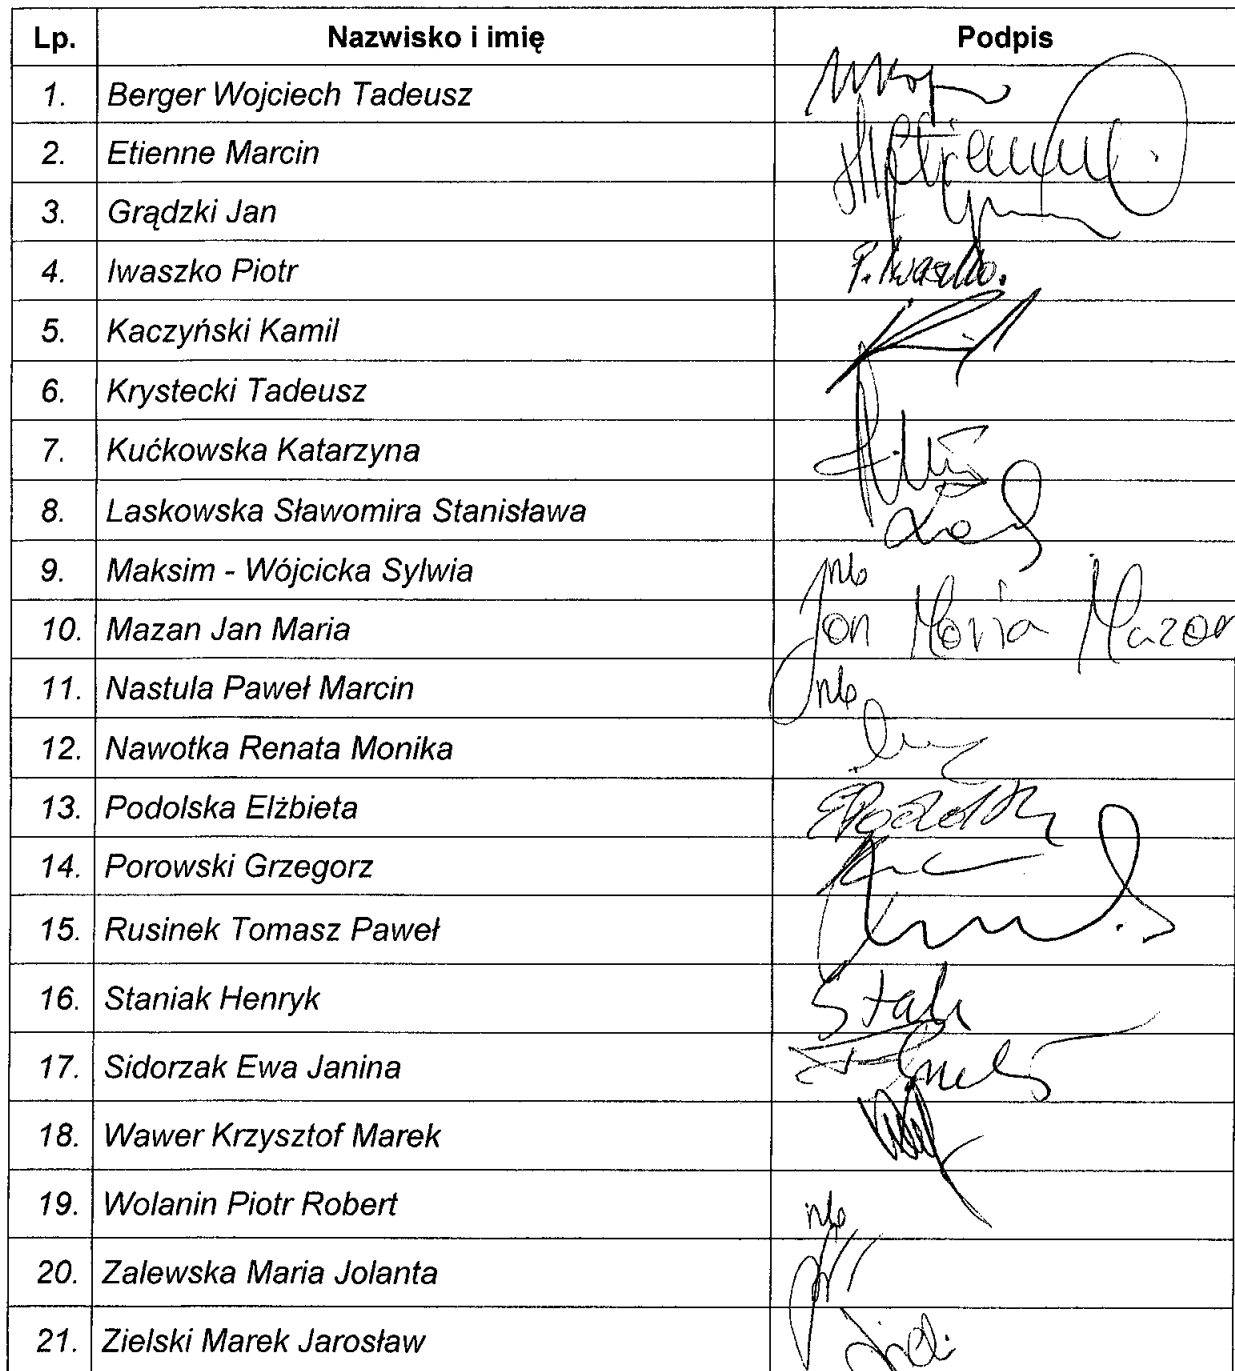 Lp. Nazwisko i imię Podpis
1. Berger Wojciech Tadeusz
2. Etienne Marcin
3. Grądzki Jan
4. Iwaszko Piotr P. Iwaszko.
5. Kaczyński Kamil
6. Krystecki Tadeusz
7. Kućkowska Katarzyna
8. Laskowska Sławomira Stanisława
9. Maksim - Wójcicka Sylwia nb
10. Mazan Jan Maria Jan Maria Mazan
11. Nastula Paweł Marcin nb
12. Nawotka Renata Monika
13. Podolska Elżbieta
14. Porowski Grzegorz
15. Rusinek Tomasz Paweł
16. Staniak Henryk
17. Sidorzak Ewa Janina
18. Wawer Krzysztof Marek
19. Wolanin Piotr Robert nb
20. Zalewska Maria Jolanta
21. Zielski Marek Jarosław